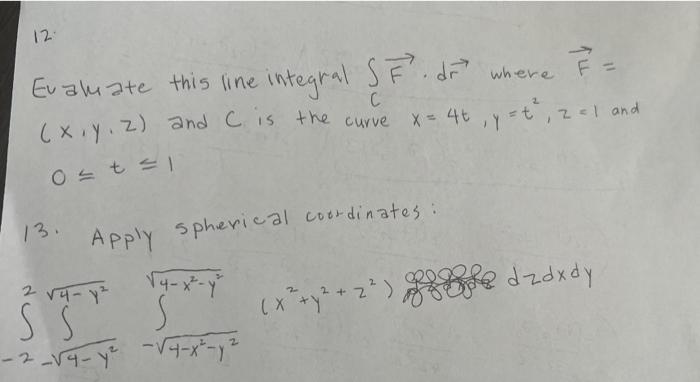 12.
Evaluate this line integral ∫_C F⃗ · dr⃗ where F⃗ =
(x, y, z) and C is the curve x = 4t, y = t², z = 1 and
0 ≤ t ≤ 1
13. Apply spherical coordinates:
∫_{-2}^{2} ∫_{-√(4-y²)}^{√(4-y²)} ∫_{-√(4-x²-y²)}^{√(4-x²-y²)} (x² + y² + z²) dzdxdy